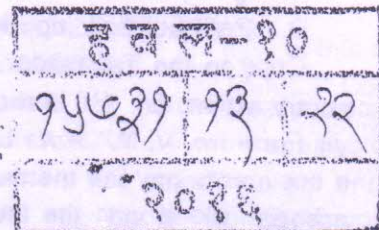 हवल-१०
१५७३१ १३ २२
२०१६